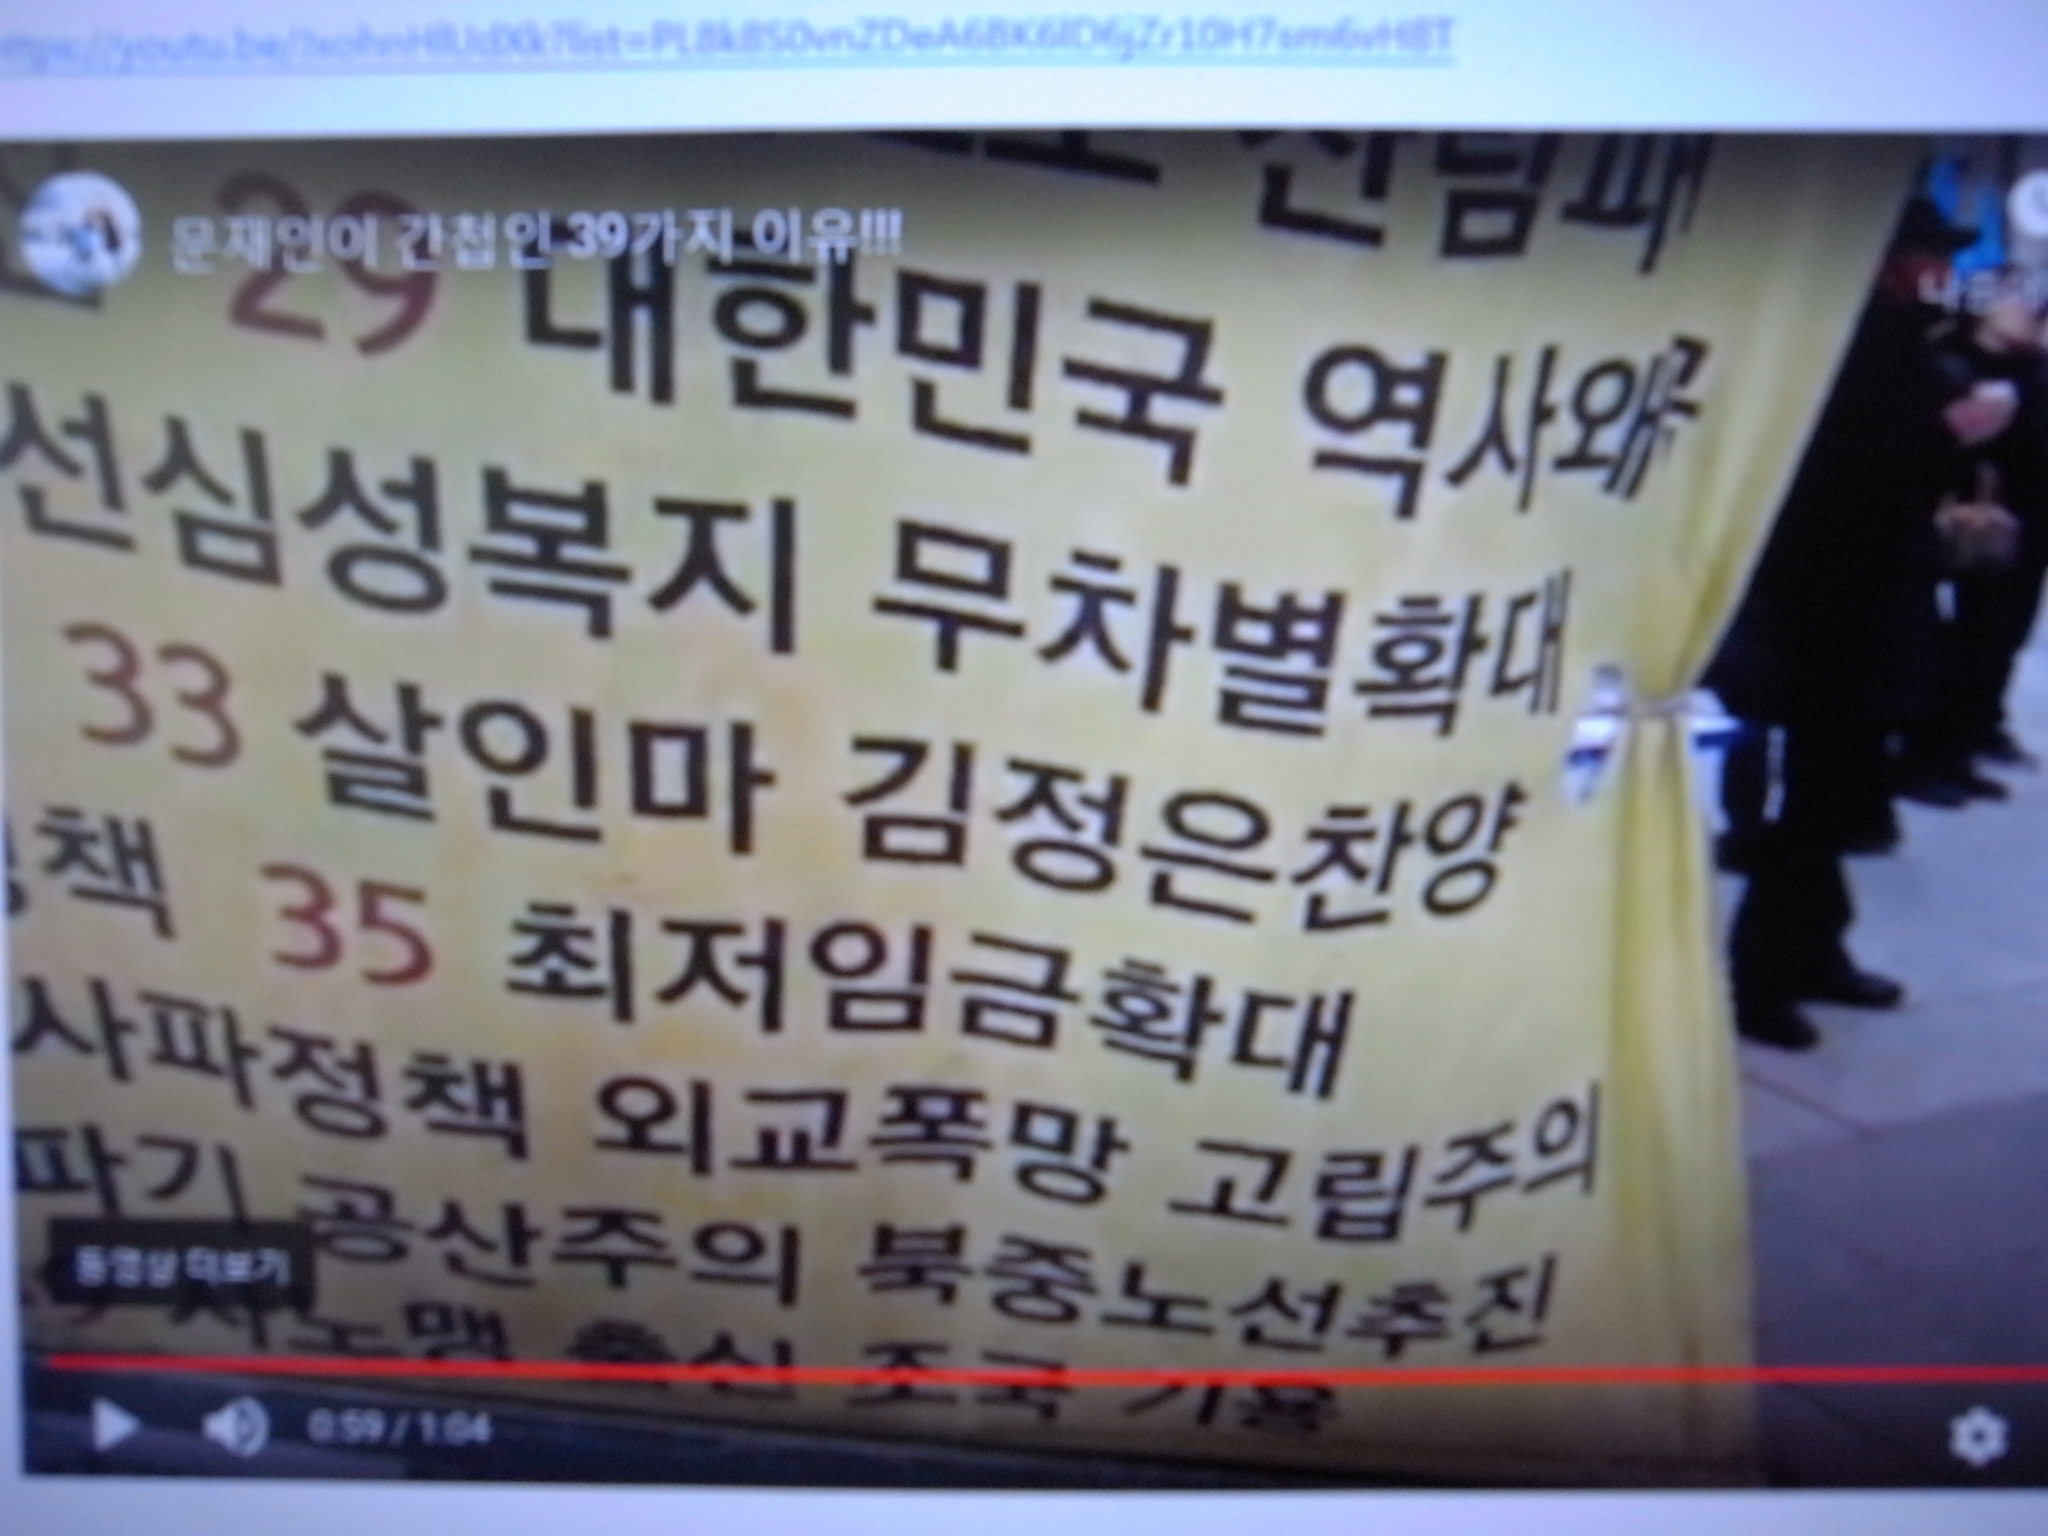 문재인이 간첩인 39가지 이유!!!
29 대한민국 역사왜곡
선심성복지 무차별확대
33 살인마 김정은찬양
책 35 최저임금확대
사파정책 외교폭망 고립주의
파기 공산주의 북중노선추진
동영상 더보기
사노맹 출신 조국 기용
0:59 / 1:04